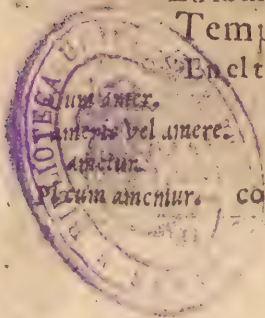 Temp
En el t
Cum amer,
ameris vel amere.
ametur.
Pl. cum amemur. co
BIBLIOTECA